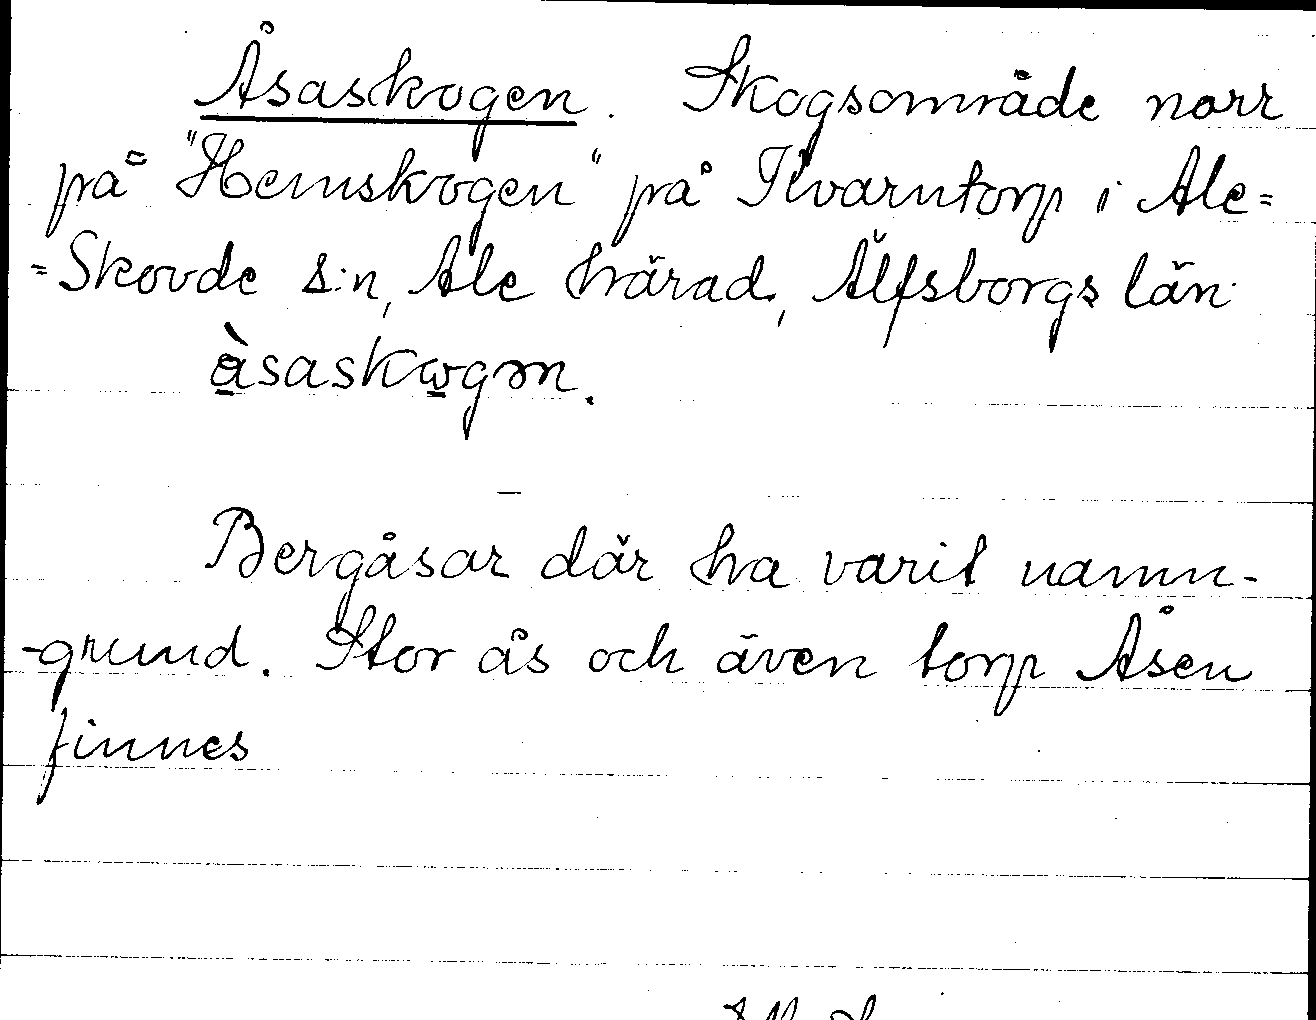 Åsaskogen. Skogsområde norr
på "Hemskogen" på Kvarntorp i Ale=
=Skövde s:n, Ale härad, Älfsborgs län.
Bergåsar där ha varit namn-
-grund. Stor ås och även torp Åsen
finnes